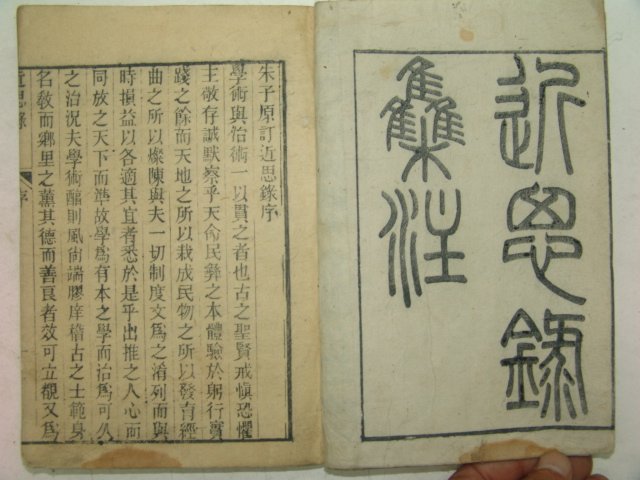 近思錄
集注
朱子原訂近思錄序
學術與治術一以貫之者也古之聖賢戒愼恐懼
主敬存誠默察乎天命民彝之本體驗於躬行實
踐之餘而天地之所以栽成民物之所以發育經
曲之所以燦陳與夫一切制度文爲之淆列而與
時損益以各適其宜者悉於是乎出推之人心而
同放之天下而準故學爲有本之學而治爲可久
之治況夫學術醕則風尙端膠庠稽古之士範身
名敎而鄕里之薰其德而善良者效可立覩又爲
近思錄 序